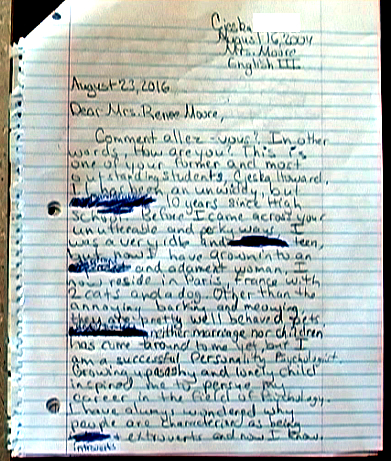 Cjeska
August 16, 2004
Mrs. Moore
English III
August 23, 2016
Dear Mrs. Renee Moore,
Comment allez-vous? In other
words, How are you? This is
one of your former and most
outstanding students, Cjeska Howard.
It has been an unasidy, but
10 years since High
school. Before I came across your
unutterable and perky ways, I
was a very idle and teen,
but now I have grown into an
and adament woman. I
now reside in Paris, France with
2 cats and a dog. Other than the
annoying barking and meowing,
they are pretty well behaved pets.
neither marriage nor children
has come around to me yet, but I
am a successful Personality Psychologist.
Growing up a shy and lonely child
inspired me to persue my
career in the field of Psychology.
I have always wondered why
people are characterized as being
introverts + extroverts and now I know.